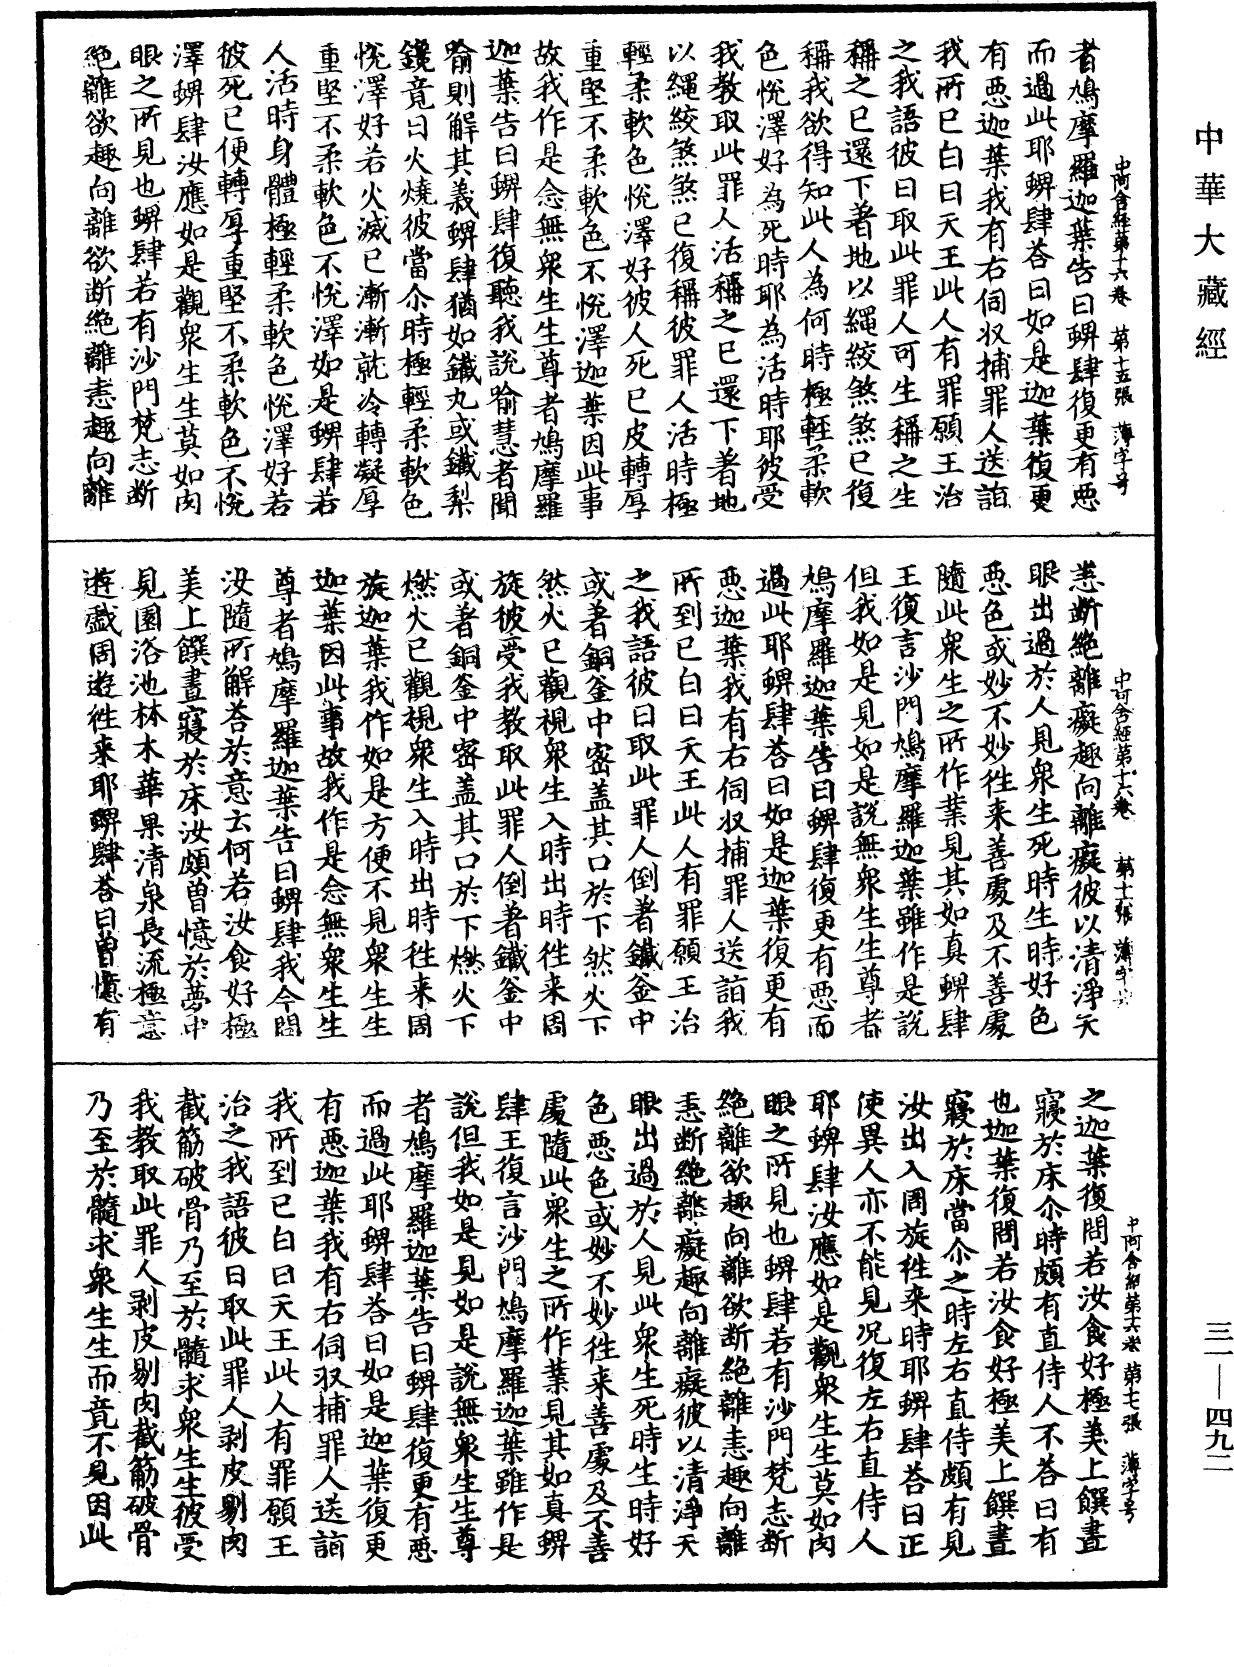 中華大藏經
中阿含經第十六卷 第十五張 薄字号
者鳩摩羅迦葉告曰蜱肆復更有惡
而過此耶蜱肆荅曰如是迦葉復更
有惡迦葉我有右伺収捕罪人送詣
我所已白曰天王此人有罪願王治
之我語彼曰取此罪人可生稱之生
稱之已還下著地以繩絞煞煞已復
稱我欲得知此人為何時極輕柔軟
色恱澤好為死時耶為活時耶彼受
我教取此罪人活稱之已還下著地
以繩絞煞煞已復稱彼罪人活時極
輕柔軟色恱澤好彼人死已皮轉厚
重堅不柔軟色不恱澤迦葉因此事
故我作是念無衆生生尊者鳩摩羅
迦葉告曰蜱肆復聽我說喻慧者聞
喻則解其義蜱肆猶如鐵丸或鐵梨
鑱竟日火燒彼當尒時極輕柔軟色
恱澤好若火滅已漸漸就冷轉凝厚
重堅不柔軟色不恱澤如是蜱肆若
人活時身體極輕柔軟色恱澤好若
彼死已便轉厚重堅不柔軟色不恱
澤蜱肆汝應如是觀衆生生莫如肉
眼之所見也蜱肆若有沙門梵志断
絕離欲趣向離欲断絕離恚趣向離
中阿含經第十六卷 第十六張
恚断絕離癡趣向離癡彼以清淨天
眼出過於人見衆生死時生時好色
惡色或妙不妙徃来善處及不善處
隨此衆生之所作業見其如真蜱肆
王復言沙門鳩摩羅迦葉雖作是說
但我如是見如是說無衆生生尊者
鳩摩羅迦葉告曰蜱肆復更有惡而
過此耶蜱肆荅曰如是迦葉復更有
惡迦葉我有右伺収捕罪人送詣我
所到已白曰天王此人有罪願王治
之我語彼曰取此罪人倒著鐵釜中
或著銅釜中密盖其口於下然火下
然火已觀視衆生入時出時徃来周
旋彼受我教取此罪人倒著鐵釜中
或著銅釜中密盖其口於下燃火下
燃火已觀視衆生入時出時徃来周
旋迦葉我作如是方便不見衆生生
迦葉因此事故我作是念無衆生生
尊者鳩摩羅迦葉告曰蜱肆我今問
汝隨所解荅於意云何若汝食好極
美上饌晝寢於床汝頗曽憶於夢中
見園浴池林木華果清泉長流極意
遊戲周遊徃来耶蜱肆荅曰曽憶有
中阿含經第十六卷 第十七張 薄字号
之迦葉復問若汝食好極美上饌晝
寢於床尒時頗有直侍人不荅曰有
也迦葉復問若汝食好極美上饌晝
寢於床當尒之時左右直侍頗有見
汝出入周旋徃来時耶蜱肆荅曰正
使異人亦不能見况復左右直侍人
耶蜱肆汝應如是觀衆生生莫如肉
眼之所見也蜱肆若有沙門梵志断
絕離欲趣向離欲断絕離恚趣向離
恚断絕離癡趣向離癡彼以清淨天
眼出過於人見此衆生死時生時好
色惡色或妙不妙徃来善處及不善
處隨此衆生之所作業見其如真蜱
肆王復言沙門鳩摩羅迦葉雖作是
說但我如是見如是說無衆生生尊
者鳩摩羅迦葉告曰蜱肆復更有惡
而過此耶蜱肆荅曰如是迦葉復更
有惡迦葉我有右伺収捕罪人送詣
我所到已白曰天王此人有罪願王
治之我語彼曰取此罪人剥皮剔肉
截筋破骨乃至於髓求衆生生彼受
我教取此罪人剥皮剔肉截筋破骨
乃至於髓求衆生生而竟不見因此
三一—四九二